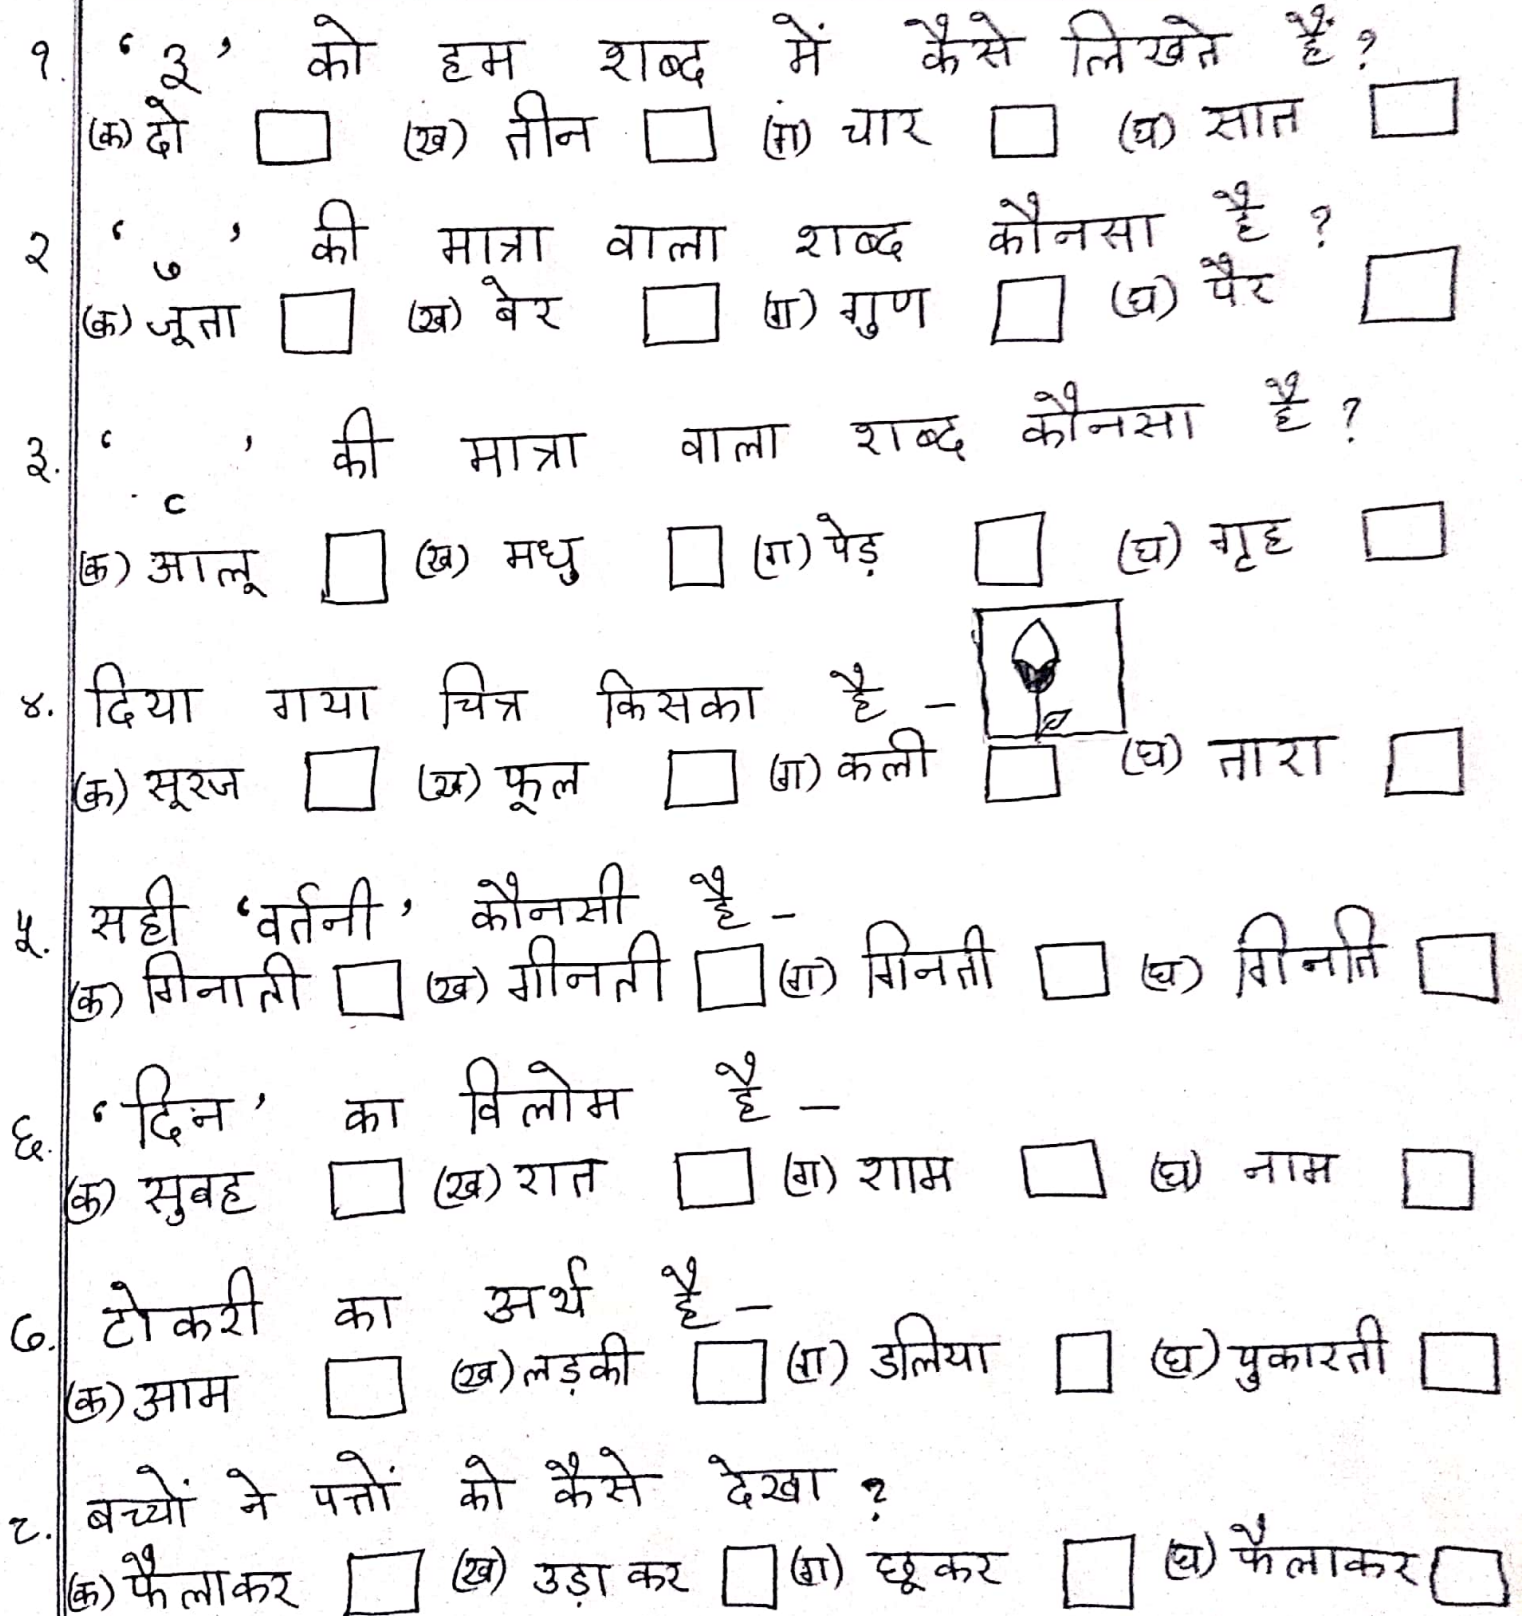 १. ‘३’ को हम शब्द में कैसे लिखते हैं?
(क) दो (ख) तीन (ग) चार (घ) सात
२ ‘ ु ’ की मात्रा वाला शब्द कौनसा है?
(क) जूता (ख) बेर (ग) गुण (घ) पैर
३. ‘ ृ ’ की मात्रा वाला शब्द कौनसा है?
(क) आलू (ख) मधु (ग) पेड़ (घ) गृह
४. दिया गया चित्र किसका है -
(क) सूरज (ख) फूल (ग) कली (घ) तारा
५. सही ‘वर्तनी’ कौनसी है -
(क) गिनाती (ख) गीनती (ग) गिनती (घ) गिनति
६. ‘दिन’ का विलोम है -
(क) सुबह (ख) रात (ग) शाम (घ) नाम
७. टोकरी का अर्थ है -
(क) आम (ख) लड़की (ग) डलिया (घ) पुकारती
८. बच्चों ने पत्तों को कैसे देखा?
(क) फैलाकर (ख) उड़ा कर (ग) छूकर (घ) फैलाकर